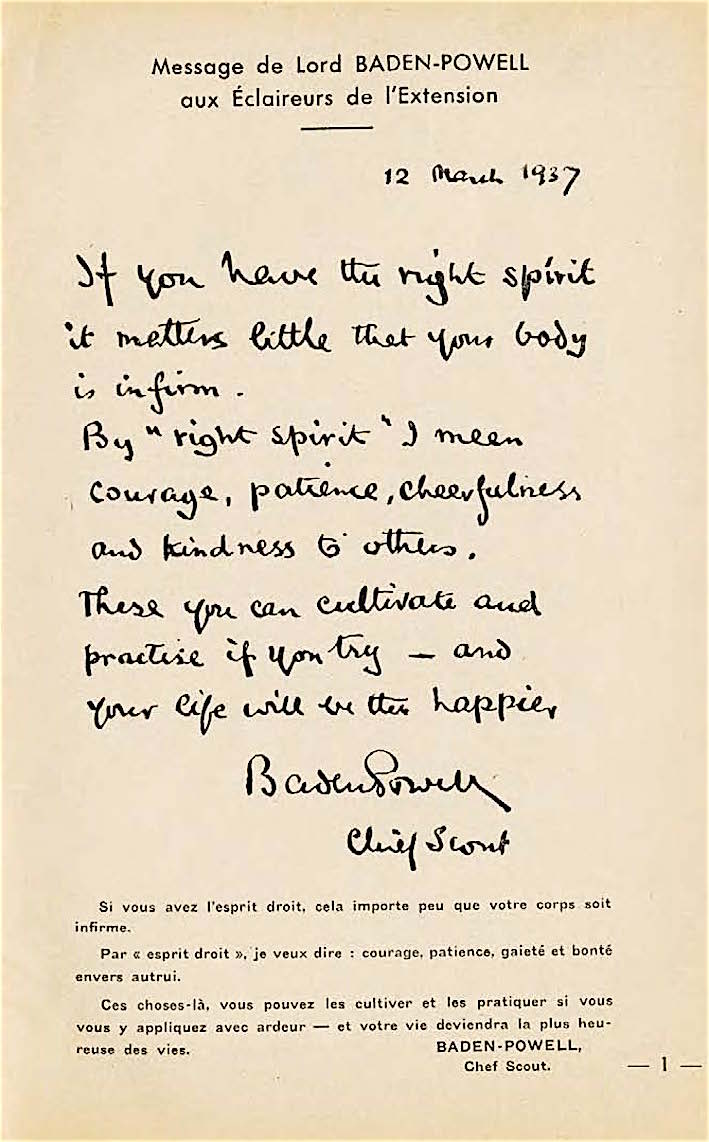 Message de Lord BADEN-POWELL
aux Éclaireurs de l'Extension
12 March 1937
If you have the right spirit
it matters little that your body
is infirm.
By "right spirit" I mean
courage, patience, cheerfulness
and kindness to others.
These you can cultivate and
practise if you try — and
your life will be the happier
Baden Powell
Chief Scout
Si vous avez l'esprit droit, cela importe peu que votre corps soit
infirme.
Par « esprit droit », je veux dire : courage, patience, gaieté et bonté
envers autrui.
Ces choses-là, vous pouvez les cultiver et les pratiquer si vous
vous y appliquez avec ardeur — et votre vie deviendra la plus heu-
reuse des vies.
BADEN-POWELL,
Chef Scout.
— 1 —